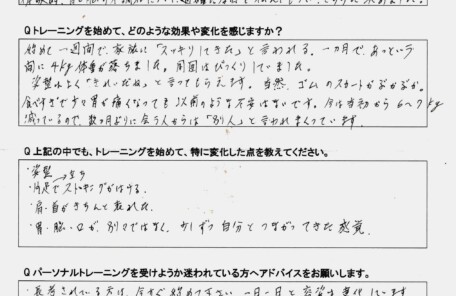 Qトレーニングを始めて、どのような効果や変化を感じますか?
始めて一週間で、家族に「スッキリしてきた」と言われる。一カ月で、あっという
間に4kg体重が落ちました。周囲はびっくりしていました。
姿勢もよく「きれいだね」と言ってもらえます。当然、ゴムのスカートがぶかぶか。
食べすぎですぐ胃が痛くなっても以前のような不安はないです。今は当初から6〜7kg
減っているので、数ヶ月ぶりに会う人からは「別人」と言われまくっています。
Q上記の中でも、トレーニングを始めて、特に変化した点を教えてください。
・姿勢 立ち
・片足でストッキングがはける。
・肩・首がきちんと取れた
・胃・腸・口が、別々ではなく、少しずつ自分とつながってきた感覚
Qパーソナルトレーニングを受けようか迷われている方へアドバイスをお願いします。